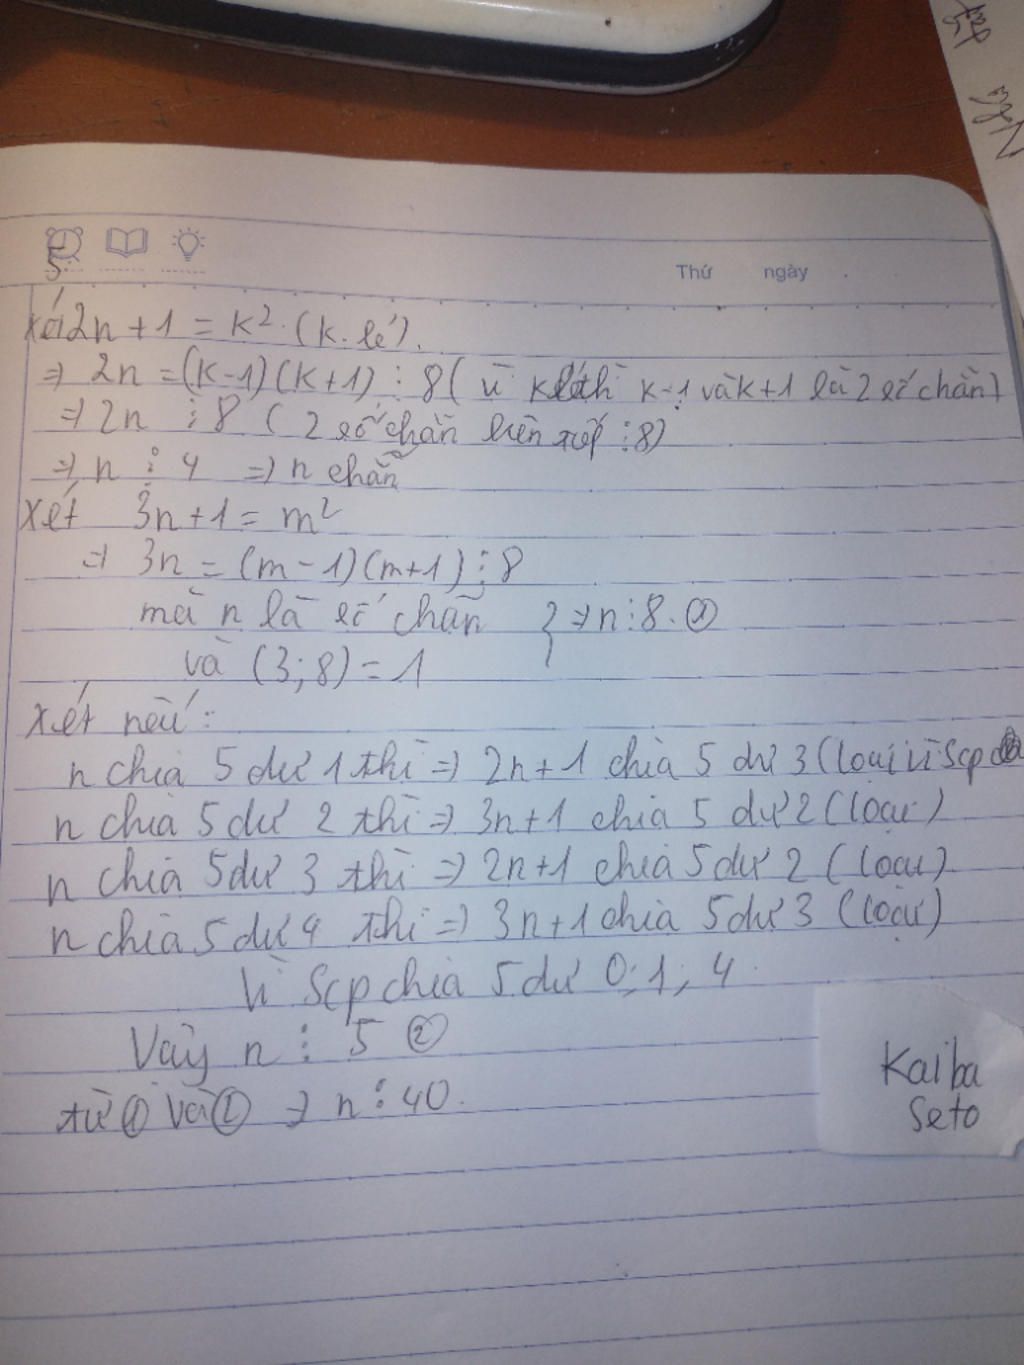 5.
Thứ ngày
xét 2n + 1 = k². (k lẻ).
⇒ 2n = (k-1)(k+1) ⋮ 8 ( vì k lẻ thì k-1 và k+1 là 2 số chẵn)
⇒ 2n ⋮ 8 ( 2 số chẵn liên tiếp ⋮ 8)
⇒ n ⋮ 4 ⇒ n chẵn
xét 3n + 1 = m²
⇒ 3n = (m - 1)(m+1) ⋮ 8
mà n là số chẵn } ⇒ n ⋮ 8. ①
và (3; 8) = 1
xét nếu:
n chia 5 dư 1 thì ⇒ 2n+1 chia 5 dư 3 (loại vì Scp
n chia 5 dư 2 thì ⇒ 3n+1 chia 5 dư 2 (loại)
n chia 5 dư 3 thì ⇒ 2n+1 chia 5 dư 2 (loại)
n chia 5 dư 4 thì ⇒ 3n+1 chia 5 dư 3 (loại)
Vì Scp chia 5 dư 0; 1; 4.
Vậy n ⋮ 5 ②
từ ① và ② ⇒ n ⋮ 40.
Kaiba
Seto